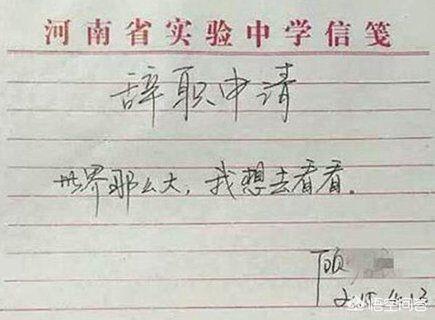 河南省实验中学信笺
辞职申请
世界那么大，我想去看看。
顾
2015.4.13
悟空问答